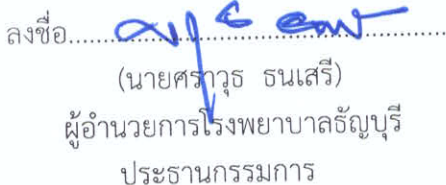 ลงชื่อ
(นายศราวุธ ธนเสรี)
ผู้อำนวยการโรงพยาบาลธัญบุรี
ประธานกรรมการ